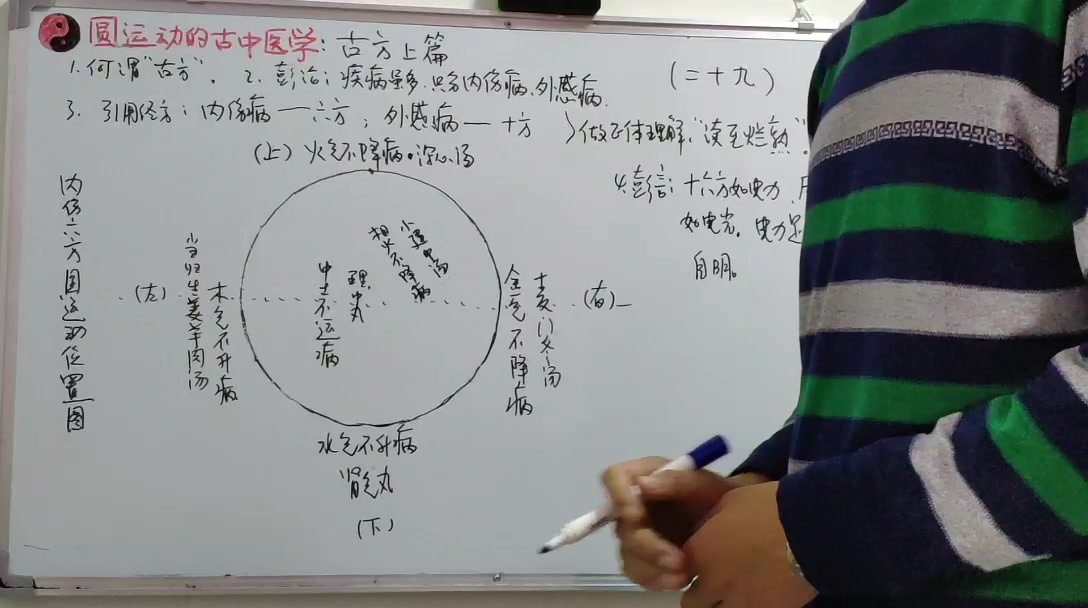 圆运动的古中医学：古方上篇
1.何谓"古方"。 2.彭治：疾病虽多，只分内伤病、外感病。
(二十九)
3.引用经方：内伤病—六方；外感病—十方 〉做正体理解，"读至烂熟"。
4.彭信：十六方如电力，
如电光。电力足
自明。
(上) 火气不降病。泻心汤
内伤六方圆运动位置图
(左)
当归生姜羊肉汤
木气不升病
中土不运病
理中丸
相火不降病
小建中汤
金气不降病
麦门冬汤
(右)
水气不升病
肾气丸
(下)